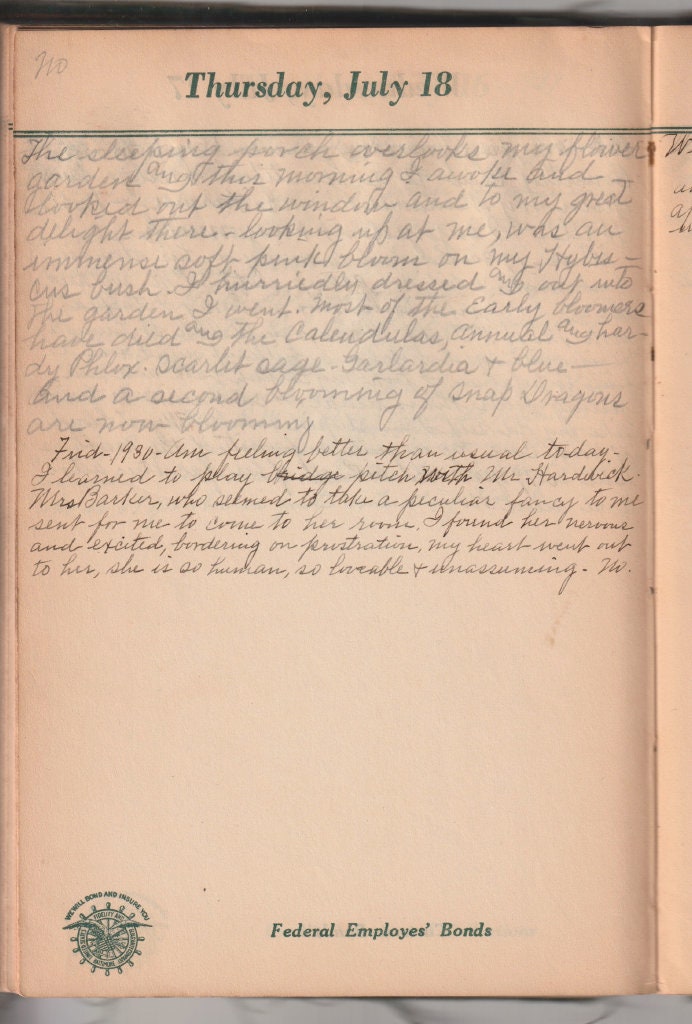 No
Thursday, July 18
The sleeping porch overlooks my flower
garden and this morning I awoke and
looked out the window and to my great
delight there - looking up at me, was an
immense soft pink bloom on my Hybis-
cus bush. I hurriedly dressed and out into
the garden I went. Most of the Early bloomers
have died and the Calendulas, annual and har-
dy Phlox. Scarlet sage - Garlardia + blue -
and a second blooming of Snap Dragons
are now blooming
Frid - 1930 - Am feeling better than usual to-day.
I learned to play bridge pitch with Mr Hardwick.
Mrs Barker, who seemed to take a peculiar fancy to me
sent for me to come to her room. I found her nervous
and excited, bordering on prostration, my heart went out
to her, she is so human, so loveable + unassuming - No.
WE WILL BOND AND INSURE YOU
FIDELITY AND
Federal Employes' Bonds